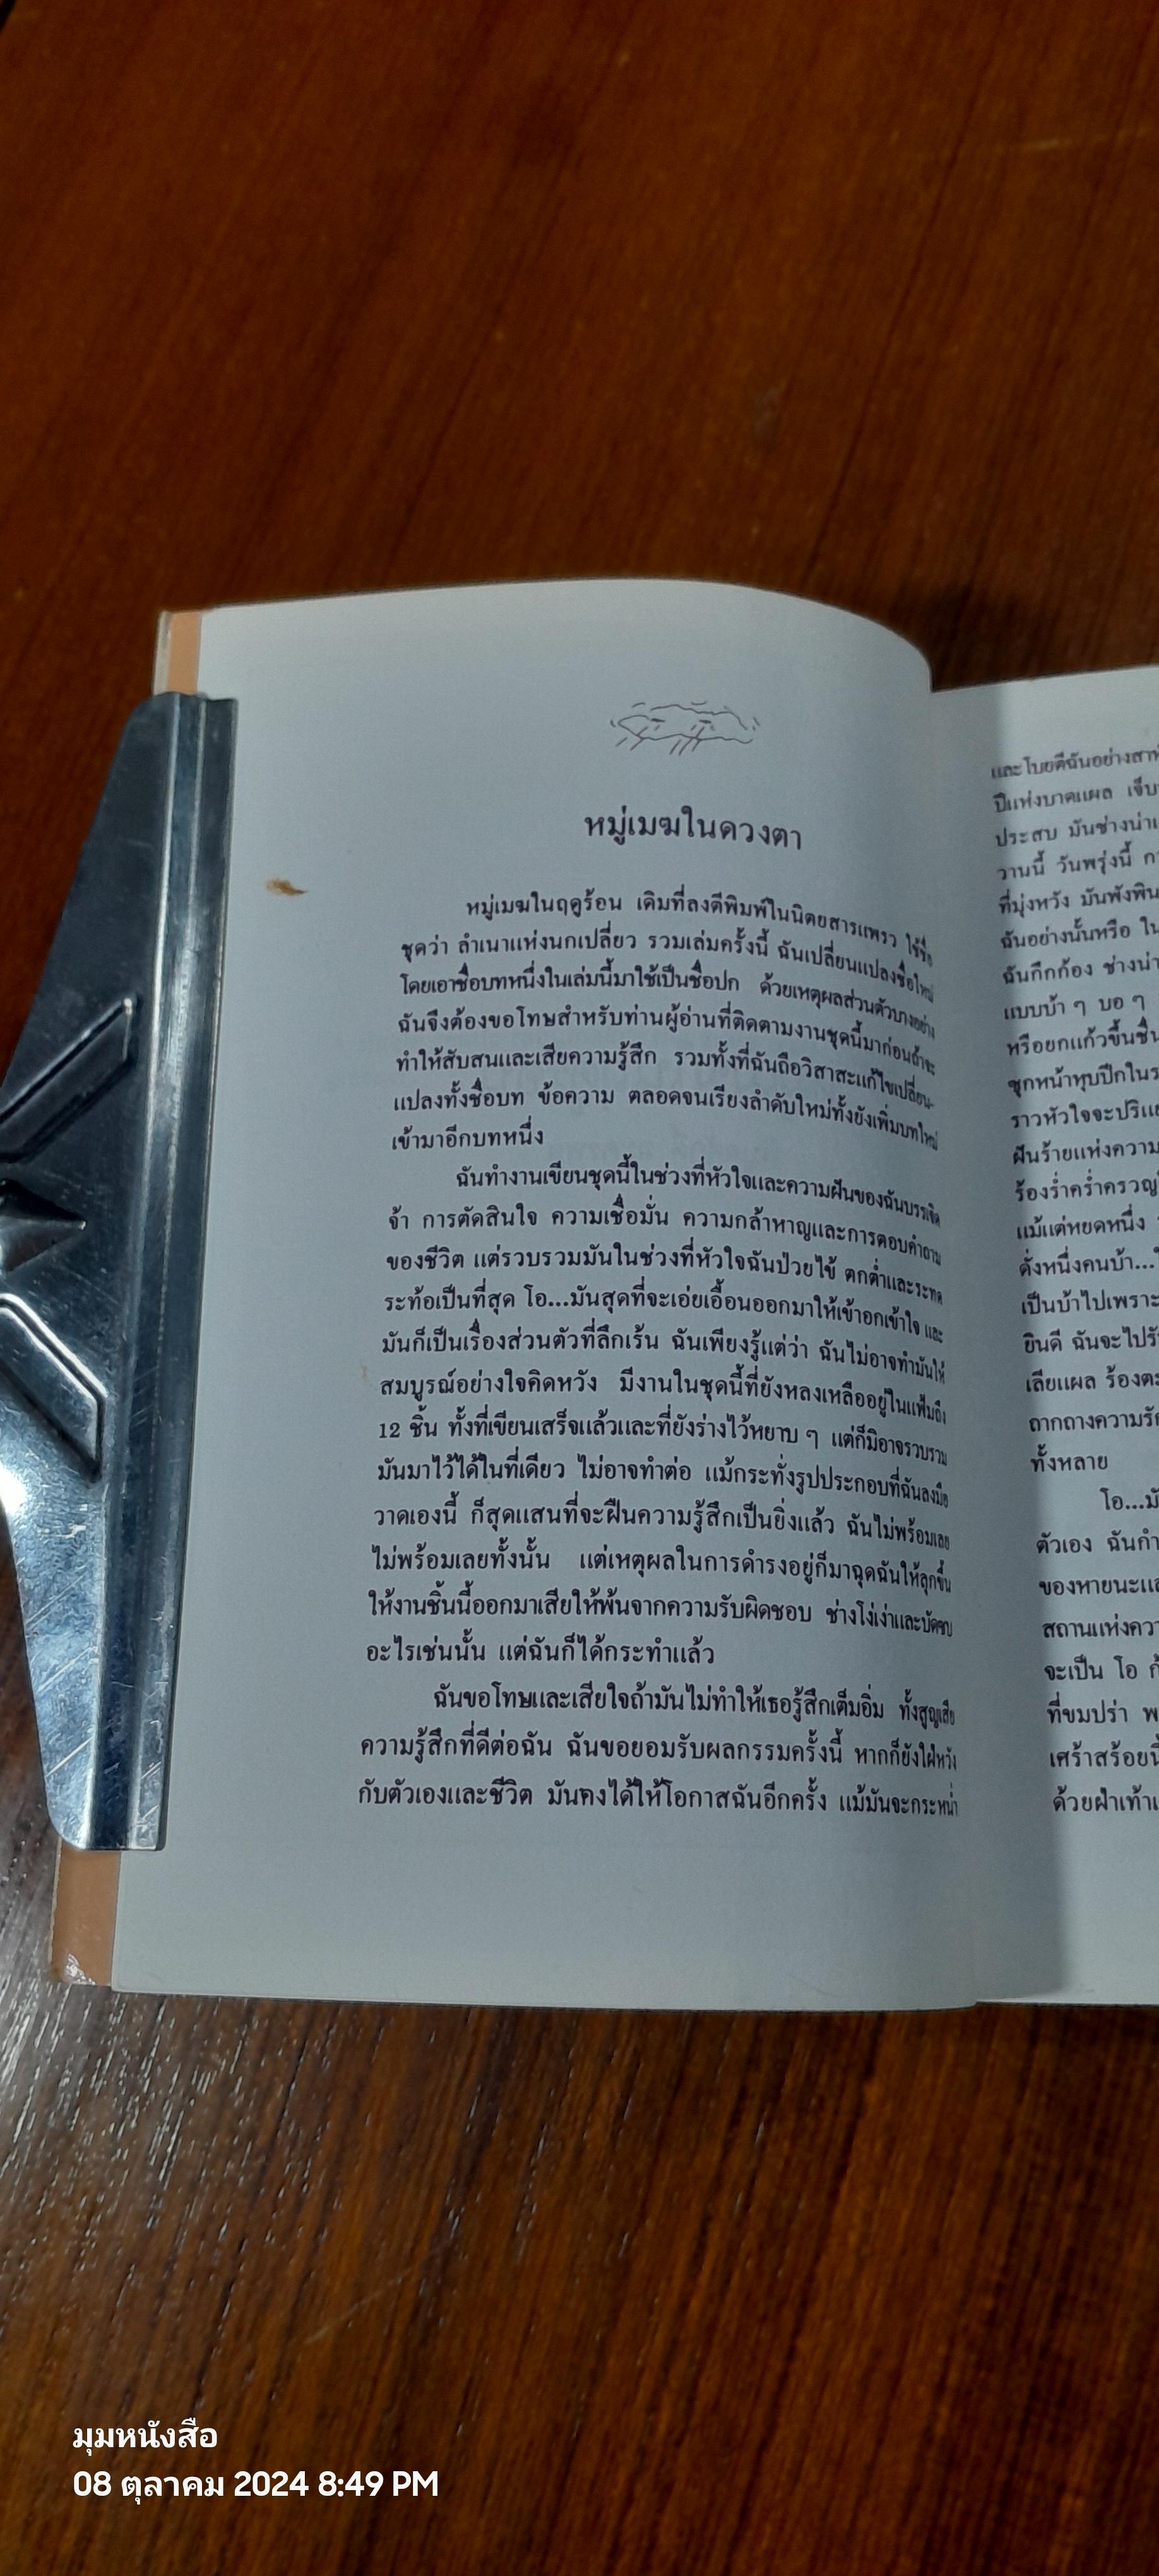 หมู่เมฆในดวงตา
หมู่เมฆในฤดูร้อน เดิมที่ลงตีพิมพ์ในนิตยสารแพรว ใช้ชื่อ
ชุดว่า ลำเนาแห่งนกเปลี่ยว รวมเล่มครั้งนี้ ฉันเปลี่ยนแปลงชื่อใหม่
โดยเอาชื่อบทหนึ่งในเล่มนี้มาใช้เป็นชื่อปก ด้วยเหตุผลส่วนตัวบางอย่าง
ฉันจึงต้องขอโทษสำหรับท่านผู้อ่านที่ติดตามงานชุดนี้มาก่อนถ้าจะ
ทำให้สับสนและเสียความรู้สึก รวมทั้งที่ฉันถือวิสาสะแก้ไขเปลี่ยน-
แปลงทั้งชื่อบท ข้อความ ตลอดจนเรียงลำดับใหม่ทั้งยังเพิ่มบทใหม่
เข้ามาอีกบทหนึ่ง
ฉันทำงานเขียนชุดนี้ในช่วงที่หัวใจและความฝันของฉันบรรเจิด
จ้า การตัดสินใจ ความเชื่อมั่น ความกล้าหาญและการตอบคำถาม
ของชีวิต แต่รวบรวมมันในช่วงที่หัวใจฉันป่วยไข้ ตกต่ำและระทด
ระท้อเป็นที่สุด โอ...มันสุดที่จะเอ่ยเอื้อนออกมาให้เข้าอกเข้าใจ และ
มันก็เป็นเรื่องส่วนตัวที่ลึกเร้น ฉันเพียงรู้แต่ว่า ฉันไม่อาจทำมันให้
สมบูรณ์อย่างใจคิดหวัง มีงานในชุดนี้ที่ยังหลงเหลืออยู่ในแฟ้มถึง
12 ชิ้น ทั้งที่เขียนเสร็จแล้วและที่ยังร่างไว้หยาบ ๆ แต่ก็มิอาจรวบรวม
มันมาไว้ได้ในที่เดียว ไม่อาจทำต่อ แม้กระทั่งรูปประกอบที่ฉันลงมือ
วาดเองนี้ ก็สุดแสนที่จะฝืนความรู้สึกเป็นยิ่งแล้ว ฉันไม่พร้อมเลย
ไม่พร้อมเลยทั้งนั้น แต่เหตุผลในการดำรงอยู่ก็มาฉุดฉันให้ลุกขึ้น
ให้งานชิ้นนี้ออกมาเสียให้พ้นจากความรับผิดชอบ ช่างโง่เง่าและบัดซบ
อะไรเช่นนั้น แต่ฉันก็ได้กระทำแล้ว
ฉันขอโทษและเสียใจถ้ามันไม่ทำให้เธอรู้สึกเต็มอิ่ม ทั้งสูญเสีย
ความรู้สึกที่ดีต่อฉัน ฉันขอยอมรับผลกรรมครั้งนี้ หากก็ยังใฝ่หวัง
กับตัวเองและชีวิต มันคงได้ให้โอกาสฉันอีกครั้ง แม้มันจะกระหน่ำ
และโบยตีฉันอย่างสา
ปีแห่งบาดแผล เจ็บ
ประสบ มันช่างน่า
วานนี้ วันพรุ่งนี้
ที่มุ่งหวัง มันพังพิน
ฉันอย่างนั้นหรือ ใน
ฉันกึกก้อง ช่างน่า
แบบบ้า ๆ บอ ๆ
หรือยกแก้วขึ้นชื่น
ซุกหน้าหุบปีกใน
ราวหัวใจจะปริแ
ฝันร้ายแห่งความ
ร้องร่ำคร่ำครวญ
แม้แต่หยดหนึ่ง
ดั่งหนึ่งคนบ้า...
เป็นบ้าไปเพราะ
ยินดี ฉันจะไปรั
เลียแผล ร้องตะ
ถากถางความรั
ทั้งหลาย
โอ...มั
ตัวเอง ฉันกำ
ของหายนะแล
สถานแห่งควา
จะเป็น โอ
ที่ขมปร่า พ
เศร้าสร้อยนี้
ด้วยฝ่าเท้าแ
มุมหนังสือ
08 ตุลาคม 2024 8:49 PM